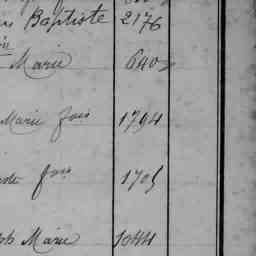 Baptiste 2176
Marie 6403
Marie fois 1794
fois 1705
Marie 1044